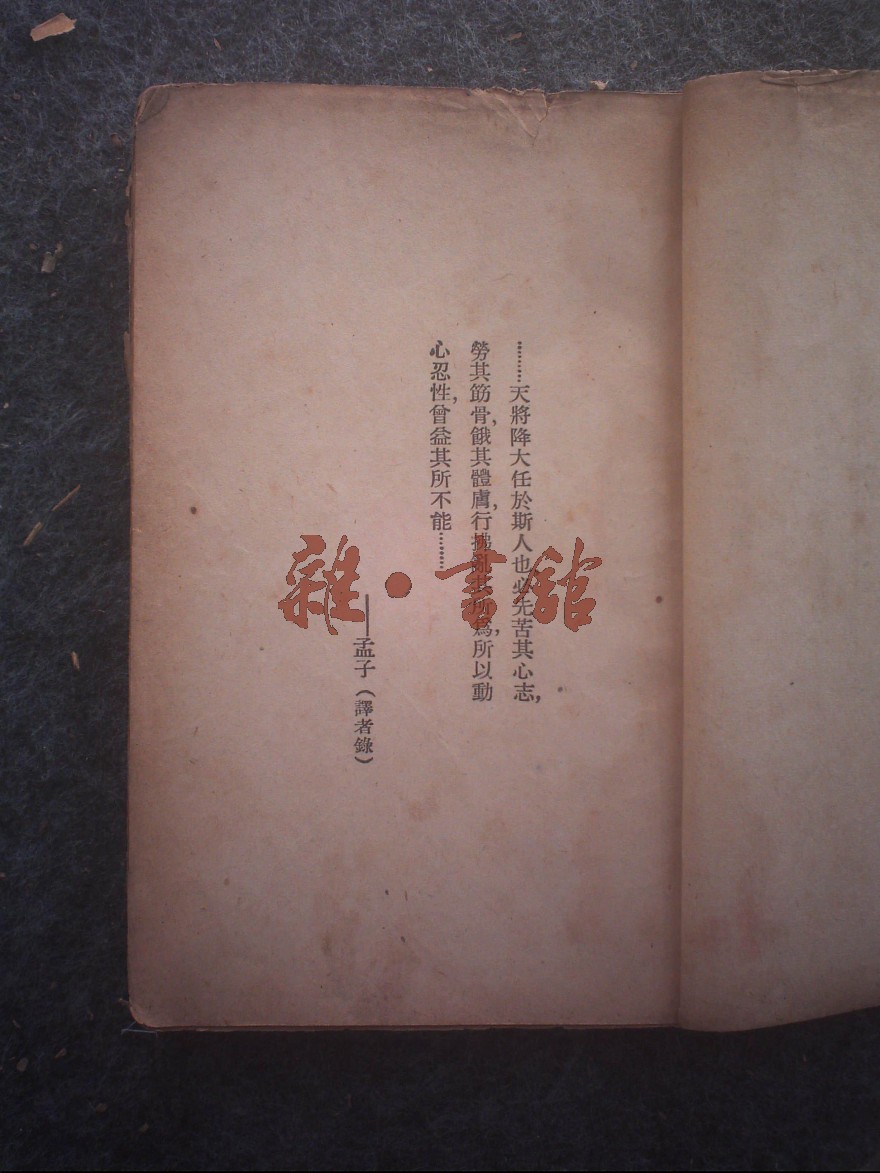 ………天將降大任於斯人也,必先苦其心志,
勞其筋骨,餓其體膚,行拂亂其所爲,所以動
心忍性,曾益其所不能………
——孟子(譯者錄)
雜·書館